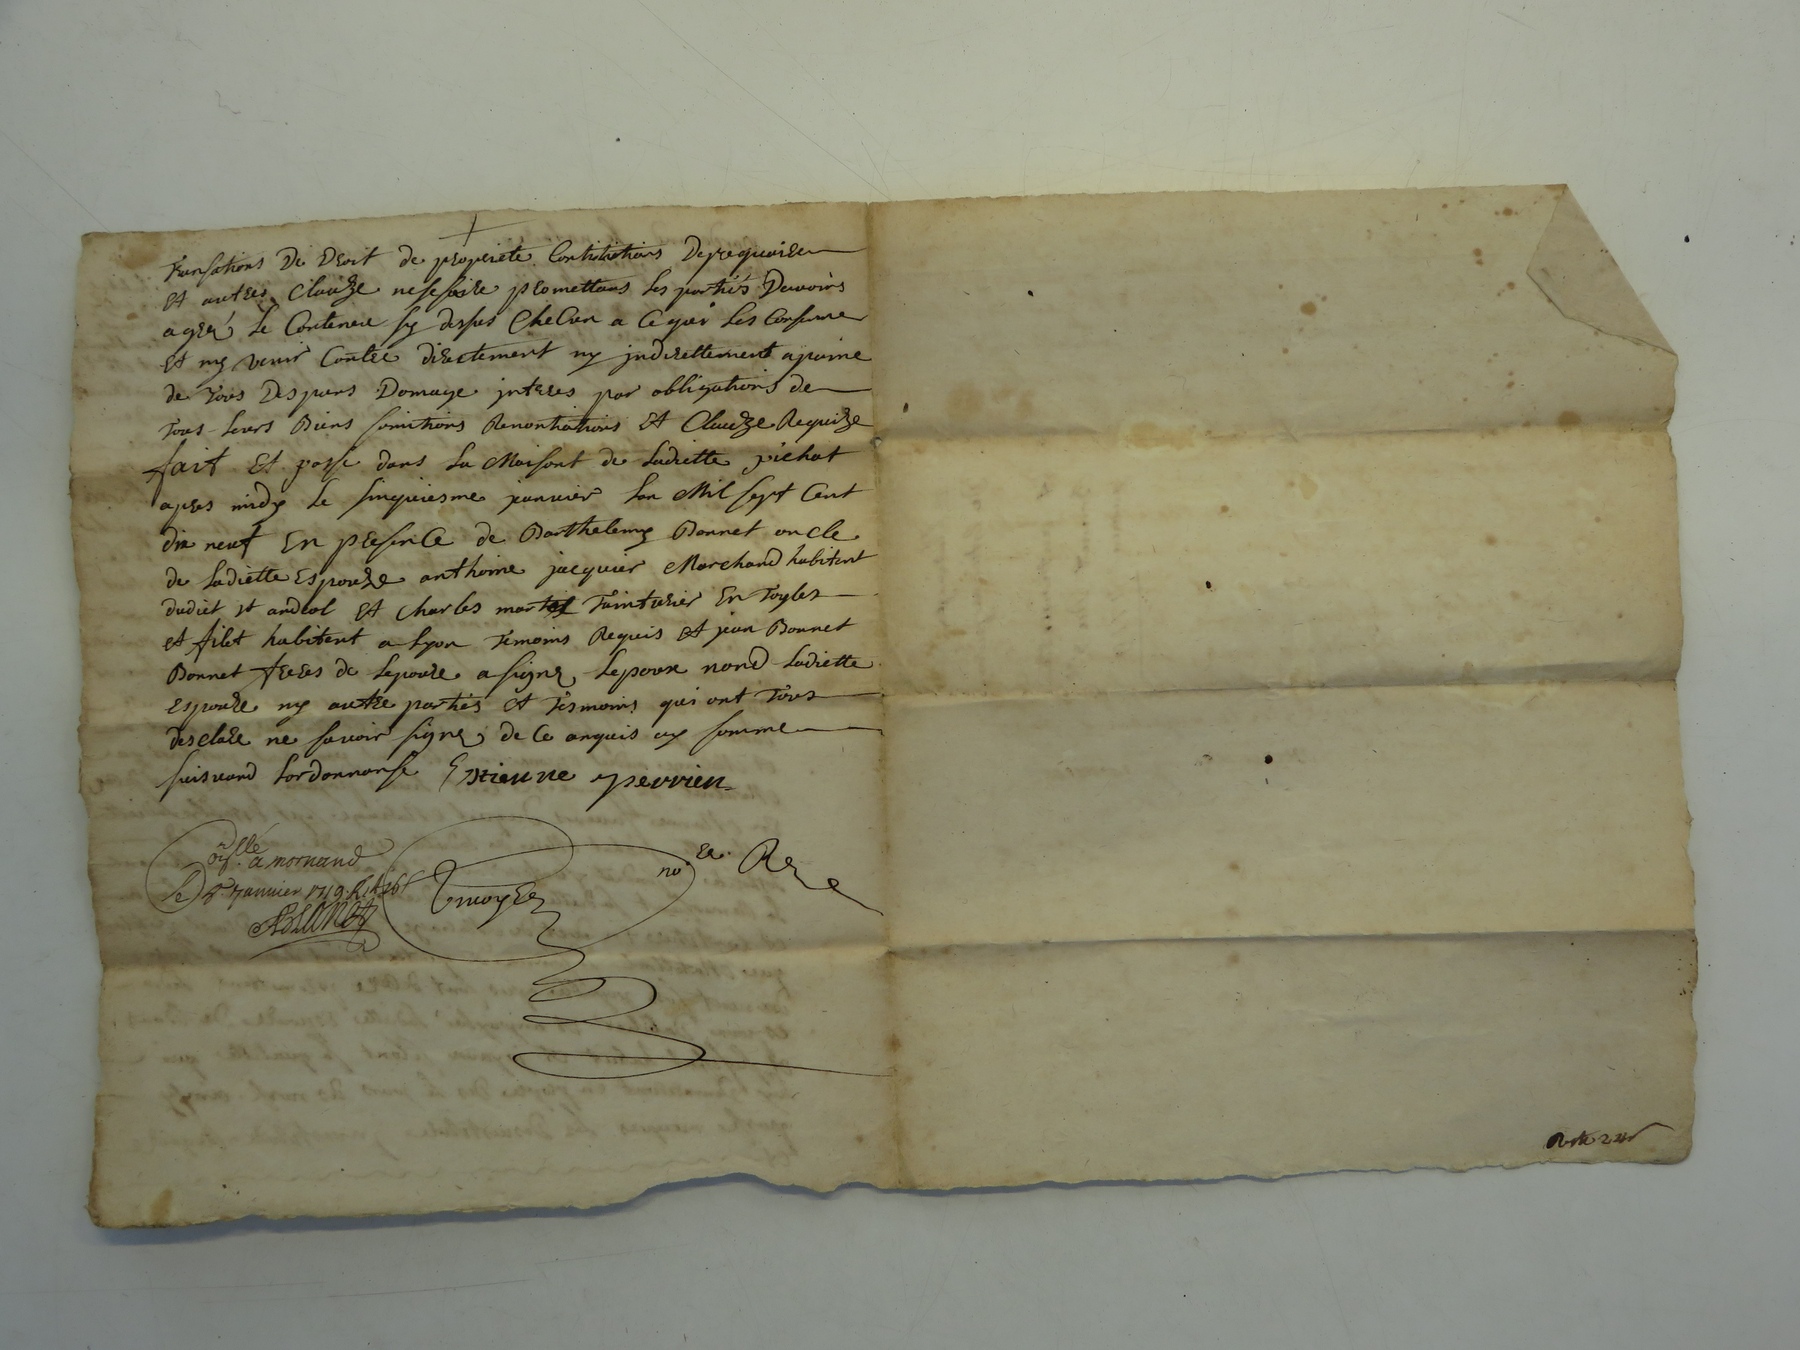 Transations De Droit de propriete Contitutions De requaire
Et autres Clauze nesesoire promettans les partiés Davoirs
agreé Le Contenu sy desus Checun a Ce quoi Les Conserne
Et ny venir Contre directement ny jndirettement apaine
de Tous Despans Domage jnteres par obligations de
Tous Leurs Biens somitions Renontiations Et Clauze Requize
fait Et passé dans La Maisont de Ladiette pichat
apres midy le sinquiesme januier Lan Mil sept Cent
dix neuf En presence de Barthelemy Bonnet oncle
de Ladiette Espouze anthoine jacquier Marchand habitent
dudiet st andeol Et Charles Tainturier En Toyles
et filet habitent a Lyon Temoins Requis Et jean Bonnet
Bonnet freres de Lepouze a signe Lepoux nond Ladiette
Espouze ny autre parties Et Tesmoins qui ont Tous
desclare ne savoir signe de Ce anquis ey somme
suivand Lordonnanse Estienne perrien
a mornand
Le Januier 1719
no re